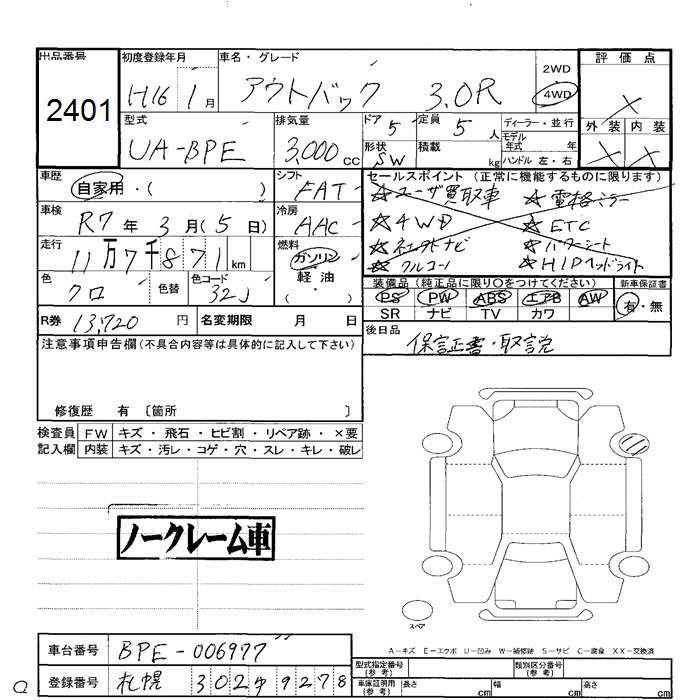 出品番号 初度登録年月 車名・グレード 2WD 評価点
2401 H16 1月 アウトバック 3.0R 4WD ×
型式 排気量 ドア 定員 ディーラー・並行 外装 内装
UA-BPE 3,000cc 5 5人 モデル年式 年 × ×
形状 積載 ハンドル 左・右
SW kg
車歴 シフト セールスポイント(正常に機能するものに限ります)
自家用・( ) FAT ☆ユーザ買取車 ☆電格ミラー
車検 冷房 ☆4WD ☆ETC
R7年3月(5日) AAC ☆パワーシート
走行 燃料 ☆クルコン ☆HIDヘッドライト
11万7千871km ガソリン
軽油
( )
色 色替 色コード 装備品(純正品に限り○をつけてください) 新車保証書
クロ 32J PS PW ABS エアB AW 有・無
R券 13,720円 名変期限 月 日 SR ナビ TV カワ
注意事項申告欄(不具合内容等は具体的に記入して下さい) 後日品
保証書・取説
修復歴 有〔箇所 〕
検査員 FW キズ・飛石・ヒビ割・リペア跡・×要
記入欄 内装 キズ・汚レ・コゲ・穴・スレ・キレ・破レ
ノークレーム車
スペア
A-キズ E-エクボ U-凹み W-補修跡 S-サビ C-腐食 XX-交換済
車台番号 BPE-006977 型式指定番号(参考) 類別区分番号(参考)
登録番号 札幌 302 9278 車庫証明用(参考) 長さ cm 幅 cm 高さ cm